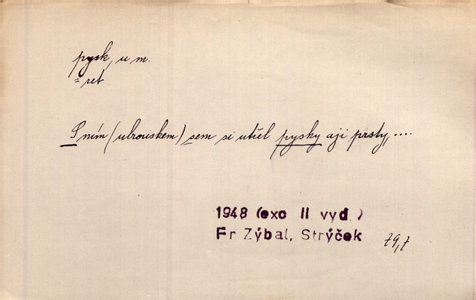 pysk, u m.
= ret
S ním (ubrouskem) sem si utřel pysky aji prsty, ....
1948 (exc II. vyd.)
Fr Zýbal, Strýček
79,7